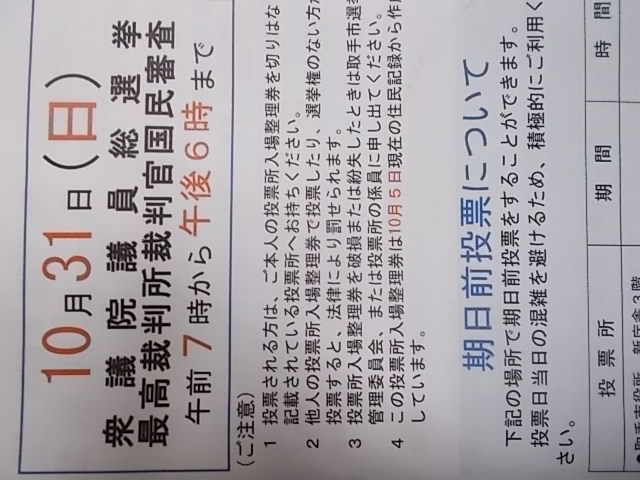 10月31日(日)
衆議院議員総選挙
最高裁判所裁判官国民審査
午前7時から午後6時まで
(ご注意)
1 投票される方は、ご本人の投票所入場整理券を切りはな
記載されている投票所へお持ちください。
2 他人の投票所入場整理券で投票したり、選挙権のない方が
投票すると、法律により罰せられます。
3 投票所入場整理券を破損または紛失したときは取手市選挙
管理委員会、または投票所の係員に申し出てください。
4 この投票所入場整理券は10月5日現在の住民記録から作成
しています。
期日前投票について
下記の場所で期日前投票をすることができます。
投票日当日の混雑を避けるため、積極的にご利用く
ださい。
投票所 期間 時間
●取手市役所 新庁舎3階